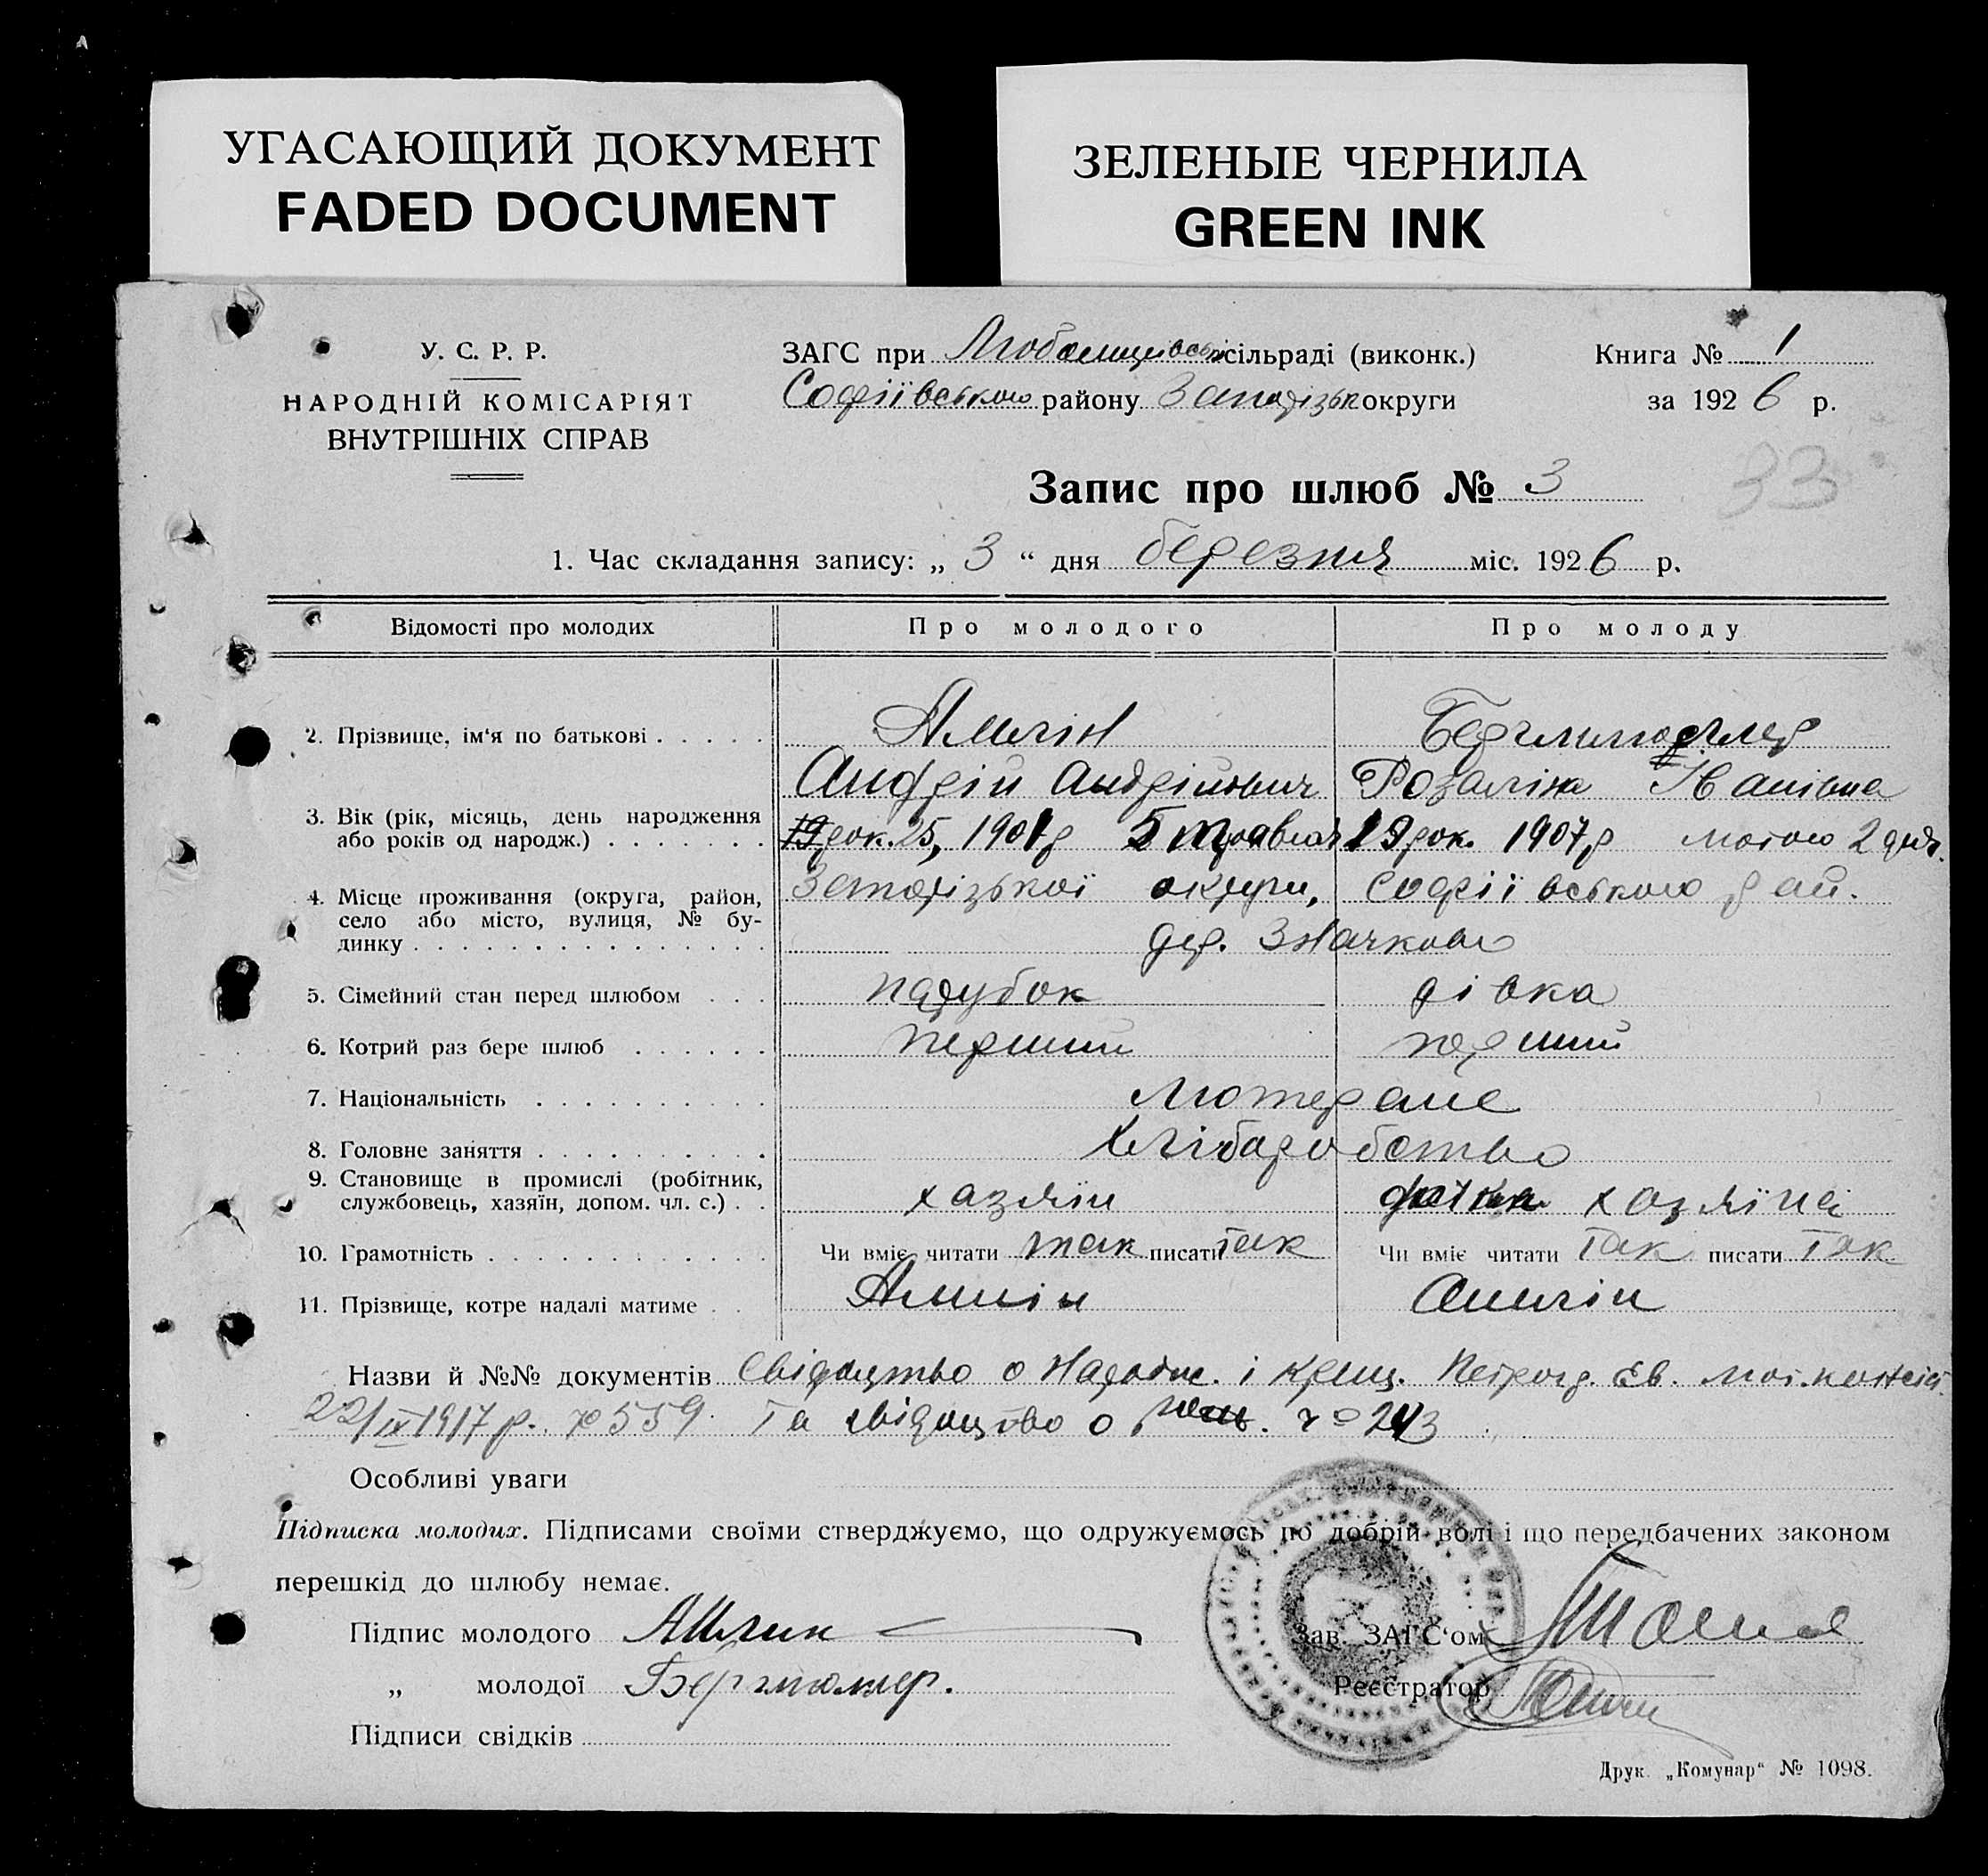 УГАСАЮЩИЙ ДОКУМЕНТ
FADED DOCUMENT
ЗЕЛЕНЫЕ ЧЕРНИЛА
GREEN INK
У. С. Р. Р.
НАРОДНІЙ КОМІСАРІЯТ
ВНУТРІШНІХ СПРАВ
ЗАГС при сільраді (виконк.)
Софіївського району Запорізьк округи
Книга № 1
за 1926 р.
33
Запис про шлюб № 3
1. Час складання запису: „ 3 “ дня березня міс. 1926 р.
Відомості про молодих Про молодого Про молоду
2. Прізвище, ім‘я по батькові
Андрій Андрійович Розаліна Іванівна
3. Вік (рік, місяць, день народження
або років од народж.) 25, 1901 р 5 травня 19 рок. 1907 р лютого 2 дня.
4. Місце проживання (округа, район, Запорізької округи, Софіївського рай.
село або місто, вулиця, № бу-
динку дер. Значково
5. Сімейний стан перед шлюбом парубок дівка
6. Котрий раз бере шлюб перший перший
7. Національність лютеране
8. Головне заняття хлібаробство
9. Становище в промислі (робітник,
службовець, хазяїн, допом. чл. с.) хазяїн хазяїна
10. Грамотність Чи вміє читати так писати так Чи вміє читати так писати так
11. Прізвище, котре надалі матиме
Назви й №№ документів Свідоцтво о Народж. і Крещ. Петрогр. Ев.
22/IX 1917 р. № 559 та свідоцтво о № 243
Особливі уваги
Підписка молодих. Підписами своїми стверджуємо, що одружуємось по добрій волі і що передбачених законом
перешкід до шлюбу немає.
Підпис молодого
Зав. ЗАГС‘ом
„ молодої
Реєстратор
Підписи свідків
Друк. „Комунар“ № 1098.